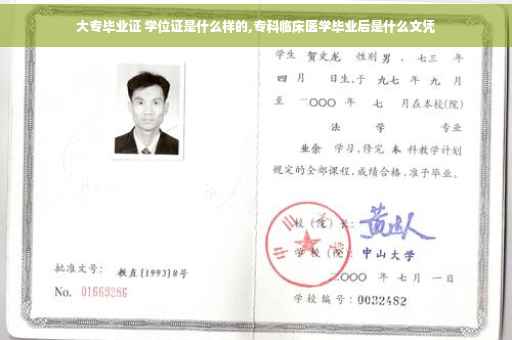 大专毕业证 学位证是什么样的,专科临床医学毕业后是什么文凭
学生 贺文龙 性别 男 、七三 年
四 月 日生,于 九七 年 九 月
至 二〇〇〇 年 七 月在本校(院)
法 学 专业
业余 学习,修完 本 科教学计划
规定的全部课程,成绩合格,准予毕业。
校(院)长:
学校(院): 中山大学
二〇〇〇 年 七 月 一 日
批准文号: 教直(1993)8号
No. 01669286
学校编号: 0032482